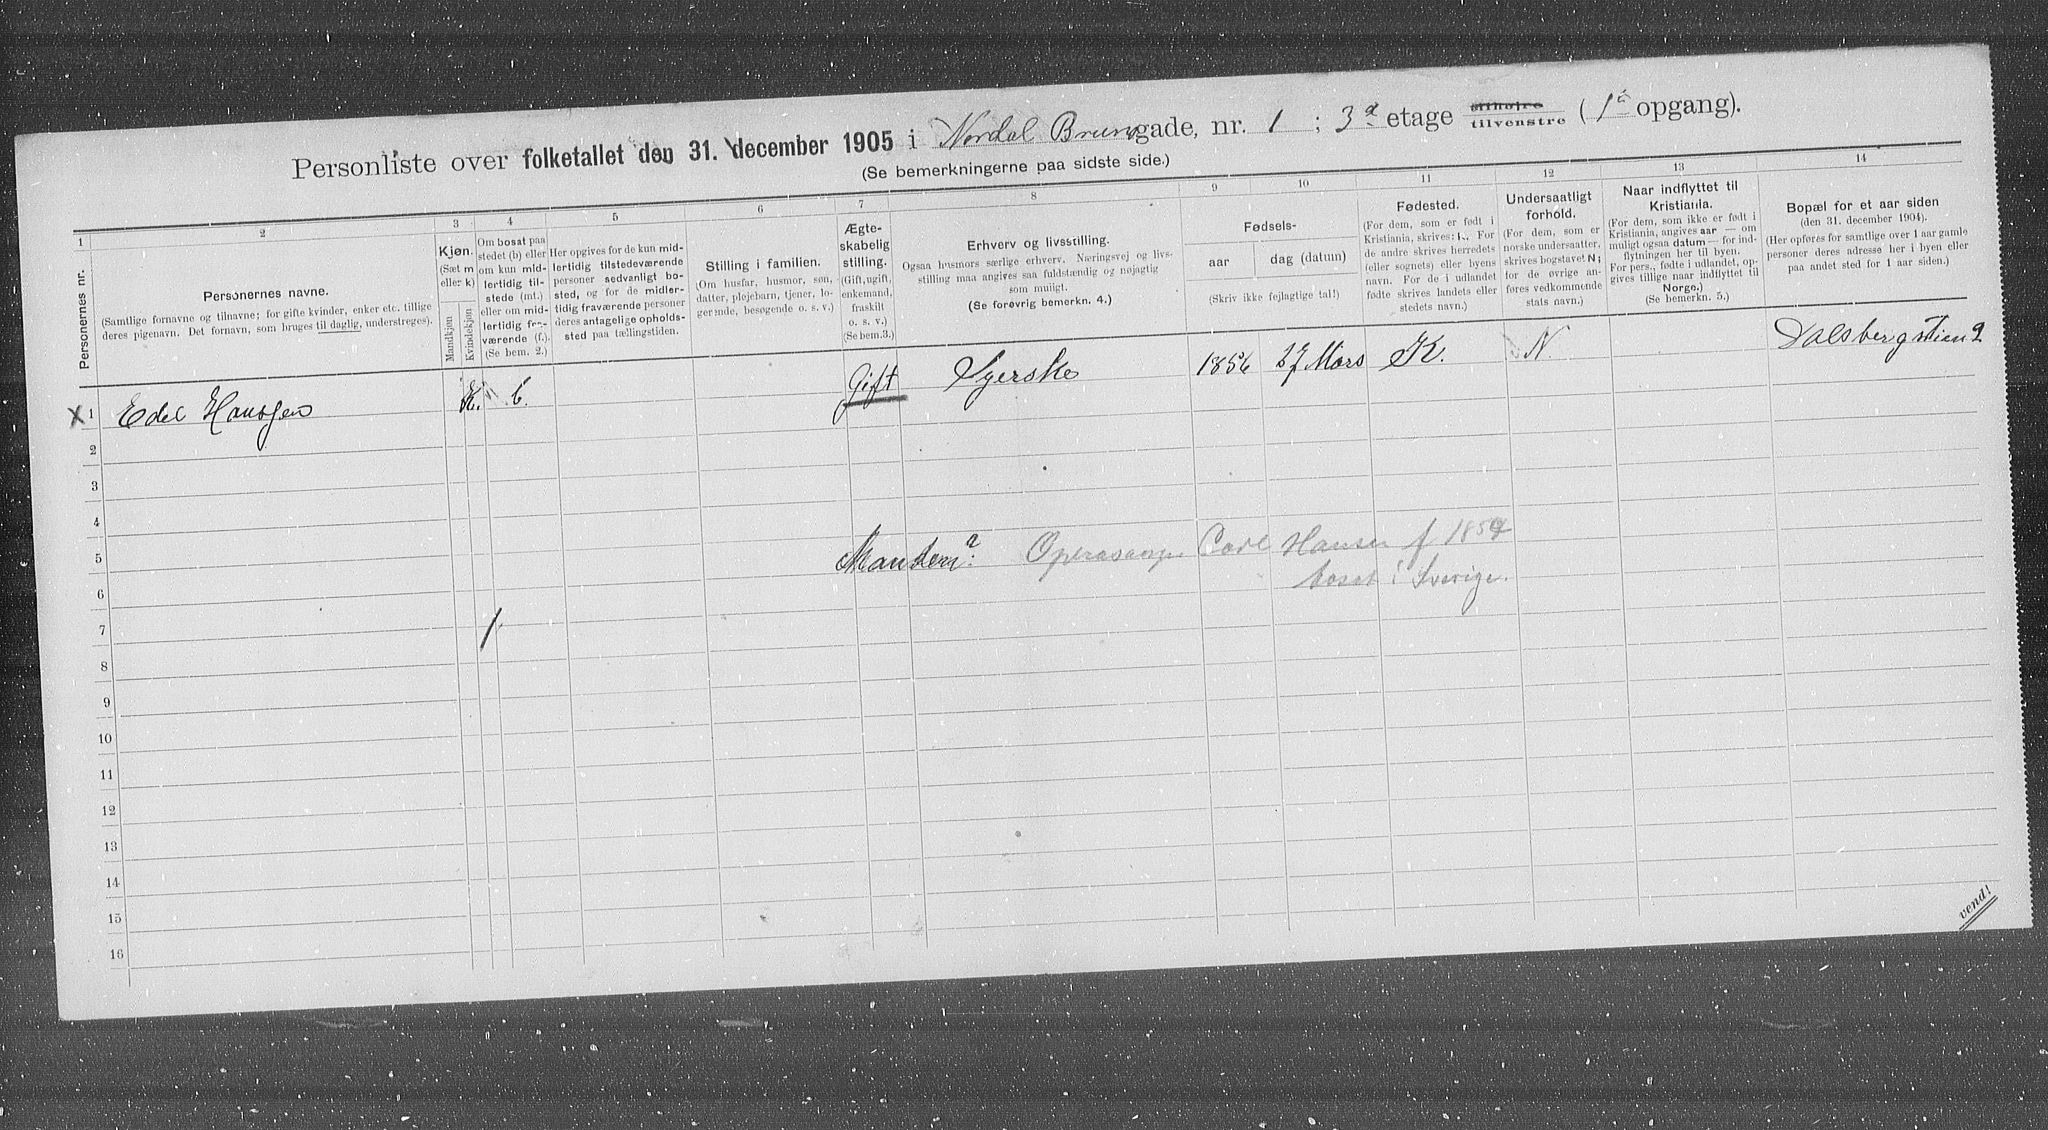 Personliste over folketallet den 31. december 1905 i Nordal Brunsgade, nr. 1 ; 3d etage tilhøire tilvenstre ( 1ē opgang).
(Se bemerkningerne paa sidste side.)
1 2 3 4 5 6 7 8 9 10 11 12 13 14
Personernes nr.
Personernes navne.
(Samtlige fornavne og tilnavne; for gifte kvinder, enker etc. tillige
deres pigenavn. Det fornavn, som bruges til daglig, understreges).
Kjøn.
(Sæt m
eller k)
Mandkjøn
Kvindekjøn
Om bosat paa
stedet (b) eller
om kun mid-
lertidig til-
stede (mt.)
eller om mid-
lertidig fra-
værende (f.).
(Se bem. 2.)
Her opgives for de kun mid-
lertidig tilstedeværende
personer sedvanligt bo-
sted, og for de midler-
tidig fraværende personer
deres antagelige opholds-
sted paa tællingstiden.
Stilling i familien.
(Om husfar, husmor, søn,
datter, plejebarn, tjener, lo-
gerende, besøgende o. s. v.)
Ægte-
skabelig
stilling.
(Gift, ugift,
enkemand,
fraskilt
o. s. v.)
(Se bem.3.)
Erhverv og livsstilling.
Ogsaa husmors særlige erhverv. Næringsvej og livs-
stilling maa angives saa fuldstændig og nøjagtig
som muligt.
(Se forøvrig bemerkn. 4.)
Fødsels-
aar
dag (datum)
(Skriv ikke fejlagtige tal!)
Fødested.
(For dem, som er født i
Kristiania, skrives: K. For
de andre skrives herredets
(eller sognets) eller byens
navn. For de i udlandet
fødte skrives landets eller
stedets navn.)
Undersaatligt
forhold.
(For dem, som er
norske undersaatter,
skrives bogstavet N;
for de øvrige an-
føres vedkommende
stats navn.)
Naar indflyttet til
Kristiania.
(For dem, som ikke er født i
Kristiania, angives aar — om
muligt ogsaa datum — for ind-
flytningen her til byen.
For pers., født i udlandet, op-
gives tillige naar indflyttet til
Norge.)
(Se bemerkn. 5.)
Bopæl for et aar siden
(den 31. december 1904).
(Her opføres for samtlige over 1 aar gamle
personer deres adresse her i byen eller
paa andet sted for 1 aar siden.)
X 1 Edel Hanssen K. b. Gift Syerske 1856 27 Mars K. N Dalsbergstien 2
2
3
4
5 Mandens? Operasanger Carl Hansen f 1859
6 bosat i Sverige.
7 1
8
9
10
11
12
13
14
15
16
vend!